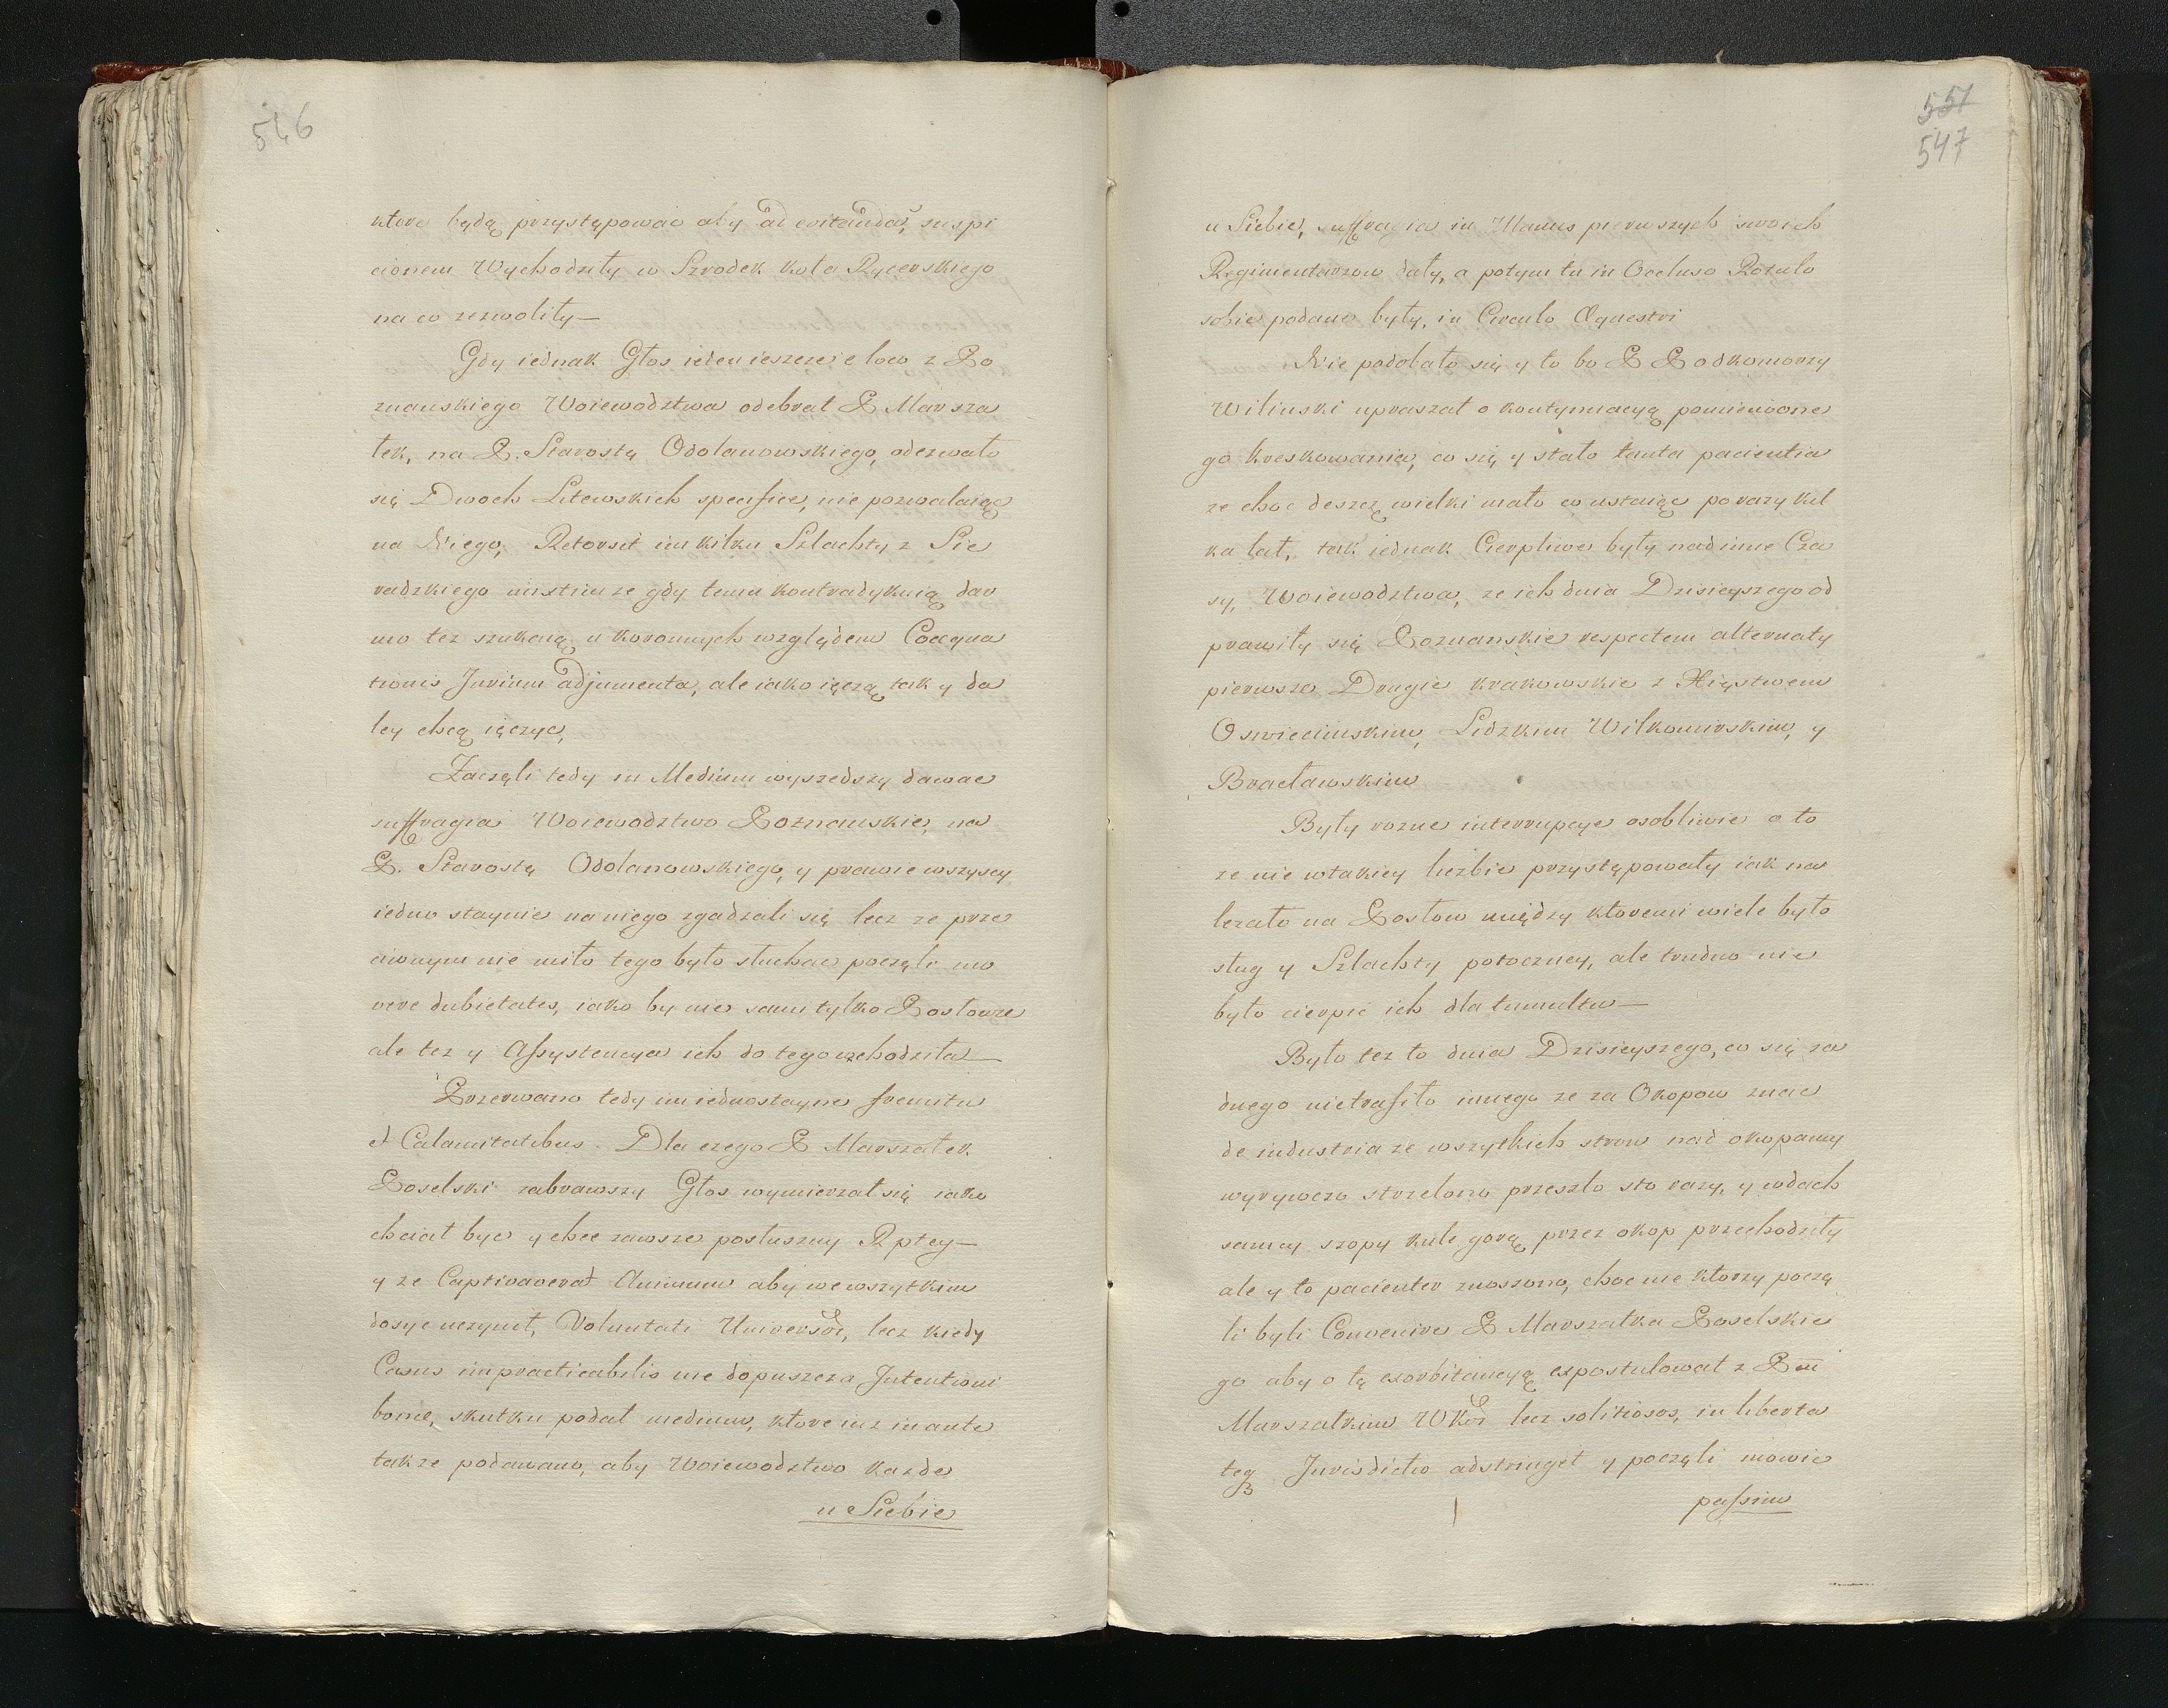 546
ktore będą przystępowac aby ad evitandã suspi
cionem Wychodziły w Szrodek koła Rycerskiego
na co zezwoliły—
Gdy iednak Głos ieden ieszcze z Po
znanskiego Woiewodztwa odebrał P Marsza
łek, na P. Starostę Odolanowskiego, odezwało
się Dwoch Litewskich specifice, nie pozwalaiąc
na Niego, Retorsit im kilku Szlachty z Sie
radzkiego ze gdy temu kontradykuią dar
mo tez szukaią u koronnych względem Coaequa
tionis Jurium adjumenta, ale iako ięczą tak y da
ley chcą ięczyc,
Zaczęli tedy in Medium wyszedszy dawac
suffragia Woiewodztwo Poznanskie, na
P. Starostę Odolanowskiego, y prawie wszyscy
iedno staynie na niego zgadzali się lecz ze prze
ciwnym nie miło tego było słuchac poczęli mo
vere dubietates, iako by nie sami tylko Posłowie
ale tez y Assystencya ich do tego wchodziła—
Przerwano tedy im iednostayne fremitu
et Calamitatibus. Dla czego P Marszałek
Poselski zabrawszy Głos wymierzał się iako
chciał byc y chce zawsze posłuszny Rptey—
y ze Captivaverat Animum aby we wszytkim
dosyc uczynił, Voluntati Universõr, lecz kiedy
Casus impracticabilis nie dopuszcza Intentioni
bonæ, skutku podał medium, ktore iuz in ante
takze podawano, aby Woiewodztwo kazde
u Siebie
551
547
u Siebie, suffragia in Manus pierwszych swoich
Regimentarzow dały, a potym tu in Occluso Rotulo
sobie podane były, in Circulo Equestri
Nie podobało się y to bo P Podkomorzy
Wilinski upraszał o kontynuacyą pomienione
go kreskowania, co się y stało tanta pacientia
ze choc deszcz wielki mało co ustaiąc po razy kil
ka lał, tak iednak Cierpliwe były nad inne Cza
sy, Woiewodztwa, ze ich dnia Dzisieyszego od
prawiły się Poznanskie respectem alternaty
pierwsze Drugie krakowskie z Xięstwem
Oswiecimskim, Lidzkim Wilkomirskim, y
Bracławskim
Były rozne interrupcye osobliwie o to
ze nie wtakiey liczbie przystępowały iak na
lezało na Posłow między ktoremi wiele było
sług y Szlachty potoczney, ale trudno nie
było cierpić ich dla tumultu—
Było tez to dnia Dzisieyszego, co się za
dnego nietrafiło innego ze za Okopow znac
de industria ze wszytkich stron nad okopamy
wyrywczo strzelono przeszło sto razy, y
samey szopy kule gorą przez okop przechodziły
ale y to pacienter znoszono, choc nie ktorzy poczę
li byli Convenire P Marszałka Poselskie
go aby o tę exorbitancyą expostulował z Pañ
Marszałkiem WKor lecz in liberta
teq3 Jurisdictio adstringit y poczęli mowic
passim